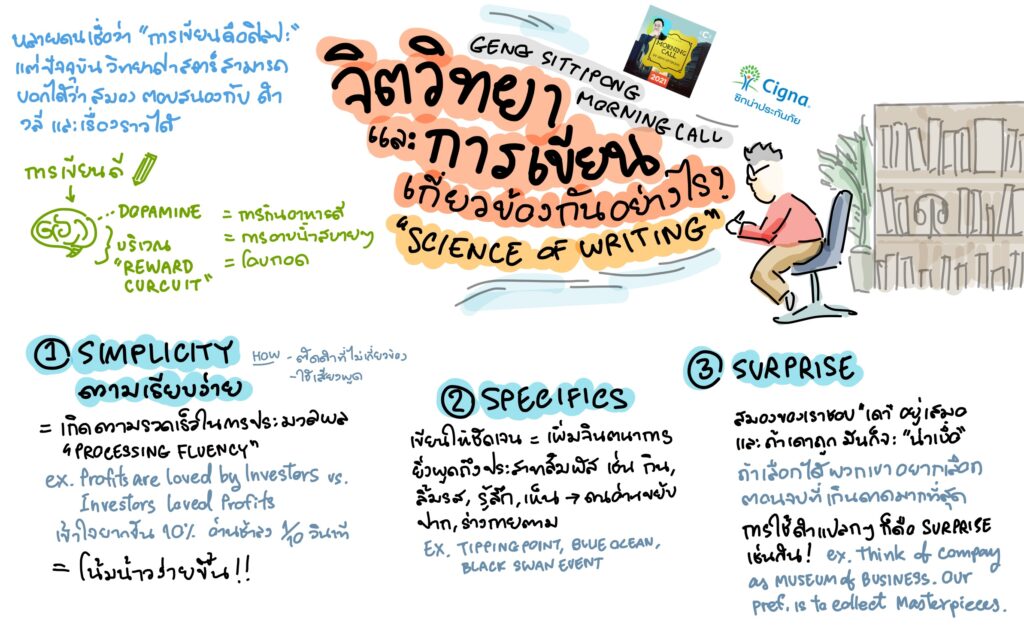 หลายคนเชื่อว่า "การเขียนคือศิลปะ"
แต่ปัจจุบัน วิทยาศาสตร์สามารถ
บอกได้ว่า สมอง ตอบสนองกับ คำ
วลี และเรื่องราวได้
การเขียนดี
DOPAMINE = การกินอาหารดี
บริเวณ = การอาบน้ำสบายๆ
"REWARD = โอบกอด
CURCUIT"
GENG SITTIPONG
MORNING CALL
MORNING
CALL
2021
Cigna
ซิกน่าประกันภัย
จิตวิทยา
และ การเขียน
เกี่ยวข้องกันอย่างไร?
"SCIENCE OF WRITING"
① SIMPLICITY
ความเรียบง่าย
HOW - ตัดคำที่ไม่เกี่ยวข้อง
- ใช้เสียงพูด
= เกิดความรวดเร็วในการประมวลผล
"PROCESSING FLUENCY"
ex. Profits are loved by Investors vs.
Investors loved Profits
เข้าใจยากขึ้น 10% อ่านช้าลง 1/10 วินาที
= โน้มน้าวง่ายขึ้น!!
② SPECIFICS
เขียนให้ชัดเจน = เพิ่มจินตนาการ
ยิ่งพูดถึงประสาทสัมผัส เช่น กิน,
ลิ้มรส, รู้สึก, เห็น → คนอ่านขยับ
ปาก, ร่างกายตาม
EX. TIPPING POINT, BLUE OCEAN,
BLACK SWAN EVENT
③ SURPRISE
สมองของเราชอบ "เดา" อยู่เสมอ
และ ถ้าเดาถูก มันก็จะ "น่าเบื่อ"
ถ้าเลือกได้ พวกเขา อยากเลือก
ตอนจบที่เกินคาดมากที่สุด
การใช้คำแปลกๆ ก็คือ SURPRISE
เช่นกัน! ex. Think of compay
as MUSEUM of BUSINESS. Our
Pref. is to collect Masterpieces.